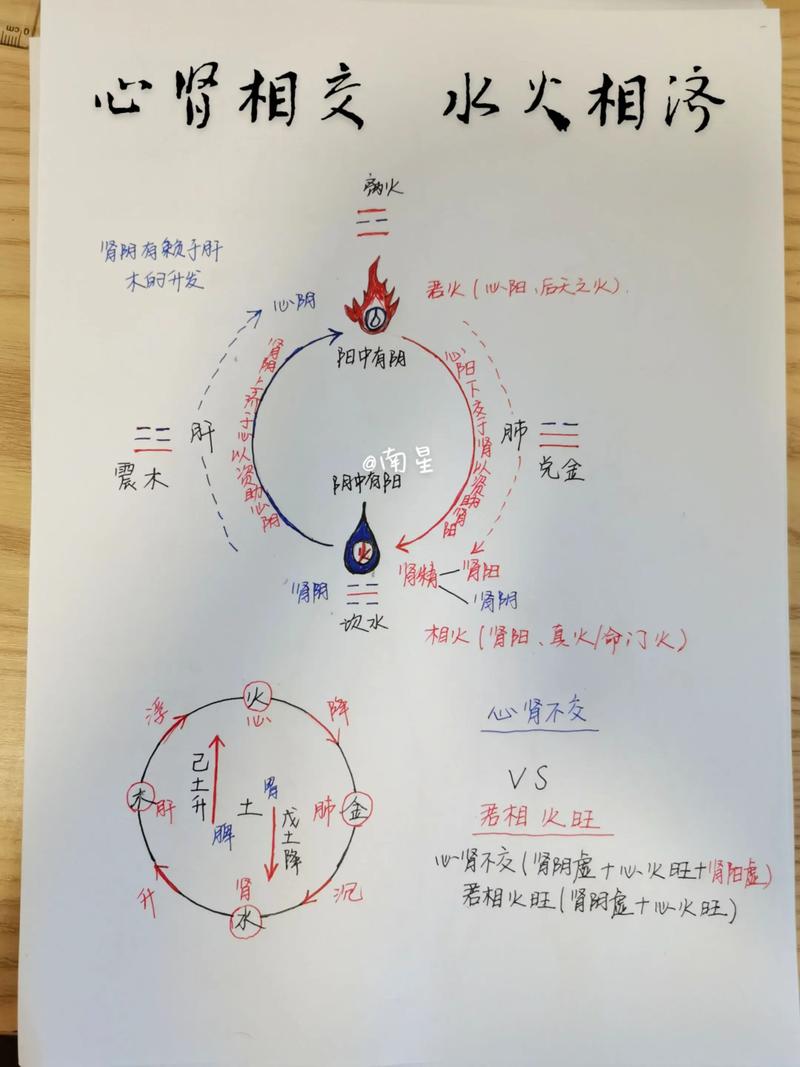 心肾相交 水火相济
离火
肾阴有赖于肝
木的升发
君火(心阳、后天之火)
心阴
阳中有阴
肾阴上济于心以资助心阴
心阳下交于肾以资助肾阳
肝
震木
肺
兑金
@南星
阴中有阳
火
肾阴
坎水
肾精
肾阳
肾阴
相火(肾阳、真火/命门火)
火
心
浮
降
木
肝
己土升
脾
土
胃
戊土降
肺
金
升
肾
水
沉
心肾不交
VS
君相火旺
心肾不交(肾阴虚+心火旺+肾阳虚)
君相火旺(肾阴虚+心火旺)
cm